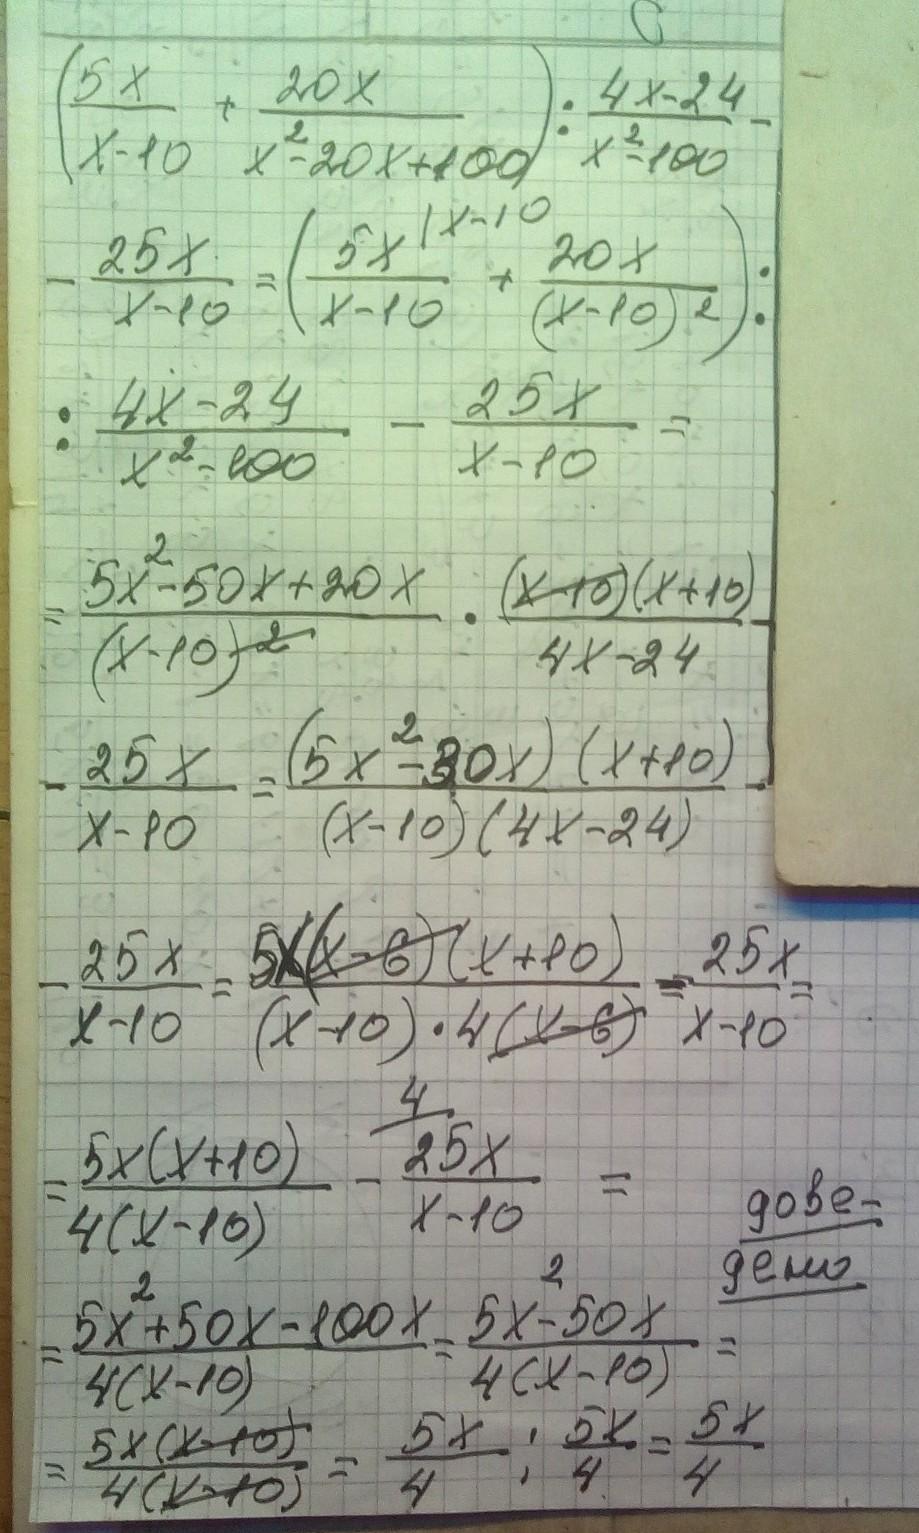 (5x/(x-10) + 20x/(x²-20x+100)) : (4x-24)/(x²-100) -
- 25x/(x-10) = (5x/(x-10) |x-10 + 20x/(x-10)²) :
: (4x-24)/(x²-100) - 25x/(x-10) =
= (5x²-50x+20x)/(x-10)² · (x-10)(x+10)/(4x-24) -
- 25x/(x-10) = (5x²-30x)(x+10)/((x-10)(4x-24)) -
- 25x/(x-10) = 5x(x-6)(x+10)/((x-10)·4(x-6)) - 25x/(x-10) =
= 5x(x+10)/(4(x-10)) - 4/ 25x/(x-10) =
дове-
дено
= (5x²+50x-100x)/(4(x-10)) = (5x²-50x)/(4(x-10)) =
= 5x(x-10)/(4(x-10)) = 5x/4 ; 5x/4 = 5x/4